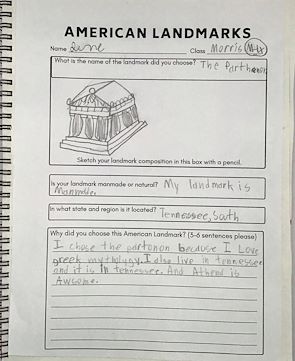 AMERICAN LANDMARKS
Name June Class Morris M-1x
What is the name of the landmark did you choose? The Parthanon
Sketch your landmark composition in this box with a pencil.
Is your landmark manmade or natural? My landmark is
Manmade.
In what state and region is it located? Tennessee, South
Why did you choose this American Landmark? (3-6 sentences please)
I chose the partonon because I Love
greek mythology. I also live in tennessee
and it is in tennessee. And Athena is
Awsome.